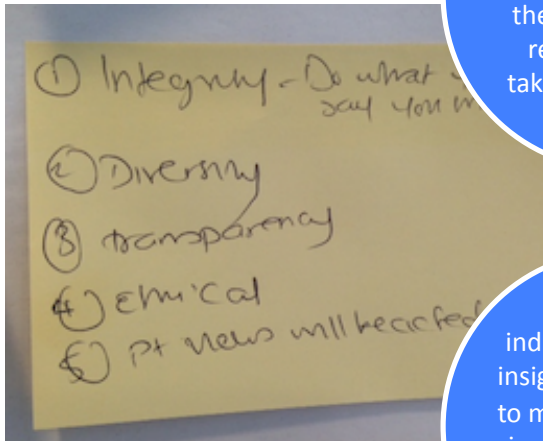 ① Integrity - Do what
say you
② Diversity
③ transparency
④ Ethical
⑤ Pt views will be acted
the
re
tak
ind
insig
to m